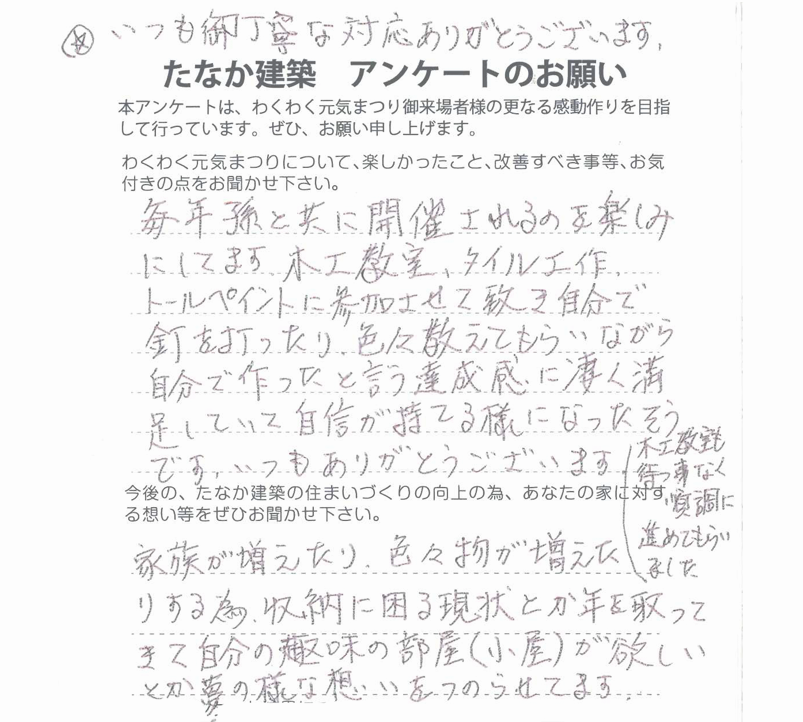 いつも御丁寧な対応ありがとうございます。
たなか建築　アンケートのお願い
本アンケートは、わくわく元気まつり御来場者様の更なる感動作りを目指
して行っています。ぜひ、お願い申し上げます。
わくわく元気まつりについて、楽しかったこと、改善すべき事等、お気
付きの点をお聞かせ下さい。
毎年孫と共に開催されるのを楽しみ
にしてます。木工教室、タイル工作、
トールペイントに参加させて致き自分で
釘を打ったり、色々教えてもらいながら
自分で作ったと言う達成感に凄く満
足していて自信が持てる様になったそう
です。いつもありがとうございます。
木工教室も
待つ事なく
順調に
進めてもらい
ました
今後の、たなか建築の住まいづくりの向上の為、あなたの家に対す
る想い等をぜひお聞かせ下さい。
家族が増えたり、色々物が増えた
りする為、収納に困る現状とか年を取って
きて自分の趣味の部屋(小屋)が欲しい
とか夢の様な想いをつのらせてます。